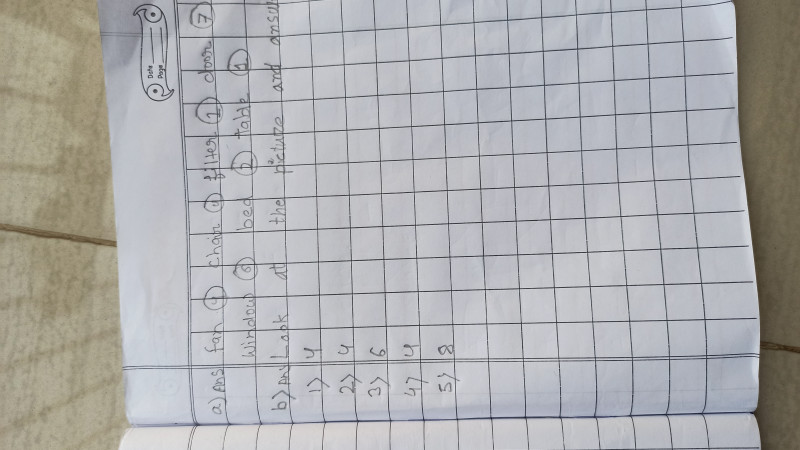 Date
Page
a) Ans fan 4 chair 4 filter 1 door 7
Window 6 bed 2 table 1
b) Ans Look at the picture and answ
1) 4
2) 4
3) 6
4) 4
5) 8